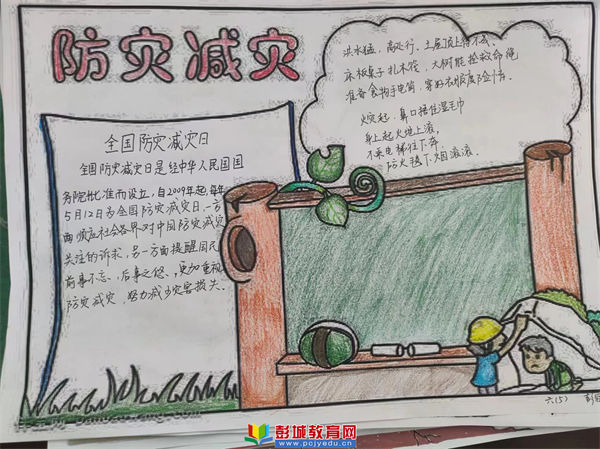 防灾减灾
全国防灾减灾日
全国防灾减灾日是经中华人民国国
务院批准而设立，自2009年起，每年
5月12日为全国防灾减灾日，一方
面顺应社会各界对中国防灾减灾
关注的诉求，另一方面提醒国民
前事不忘、后事之师，更加重视
防灾减灾，努力减少灾害损失。
洪水猛，高处行，土屋顶上待不成，
床板桌子扎木筏，大树能拴救命绳
准备食物手电筒，穿好衣服度险情。
火灾起，鼻口捂住湿毛巾
身上起火地上滚，
不乘电梯往下奔，
六(5)
彭城教育网
www.pcjyedu.cn